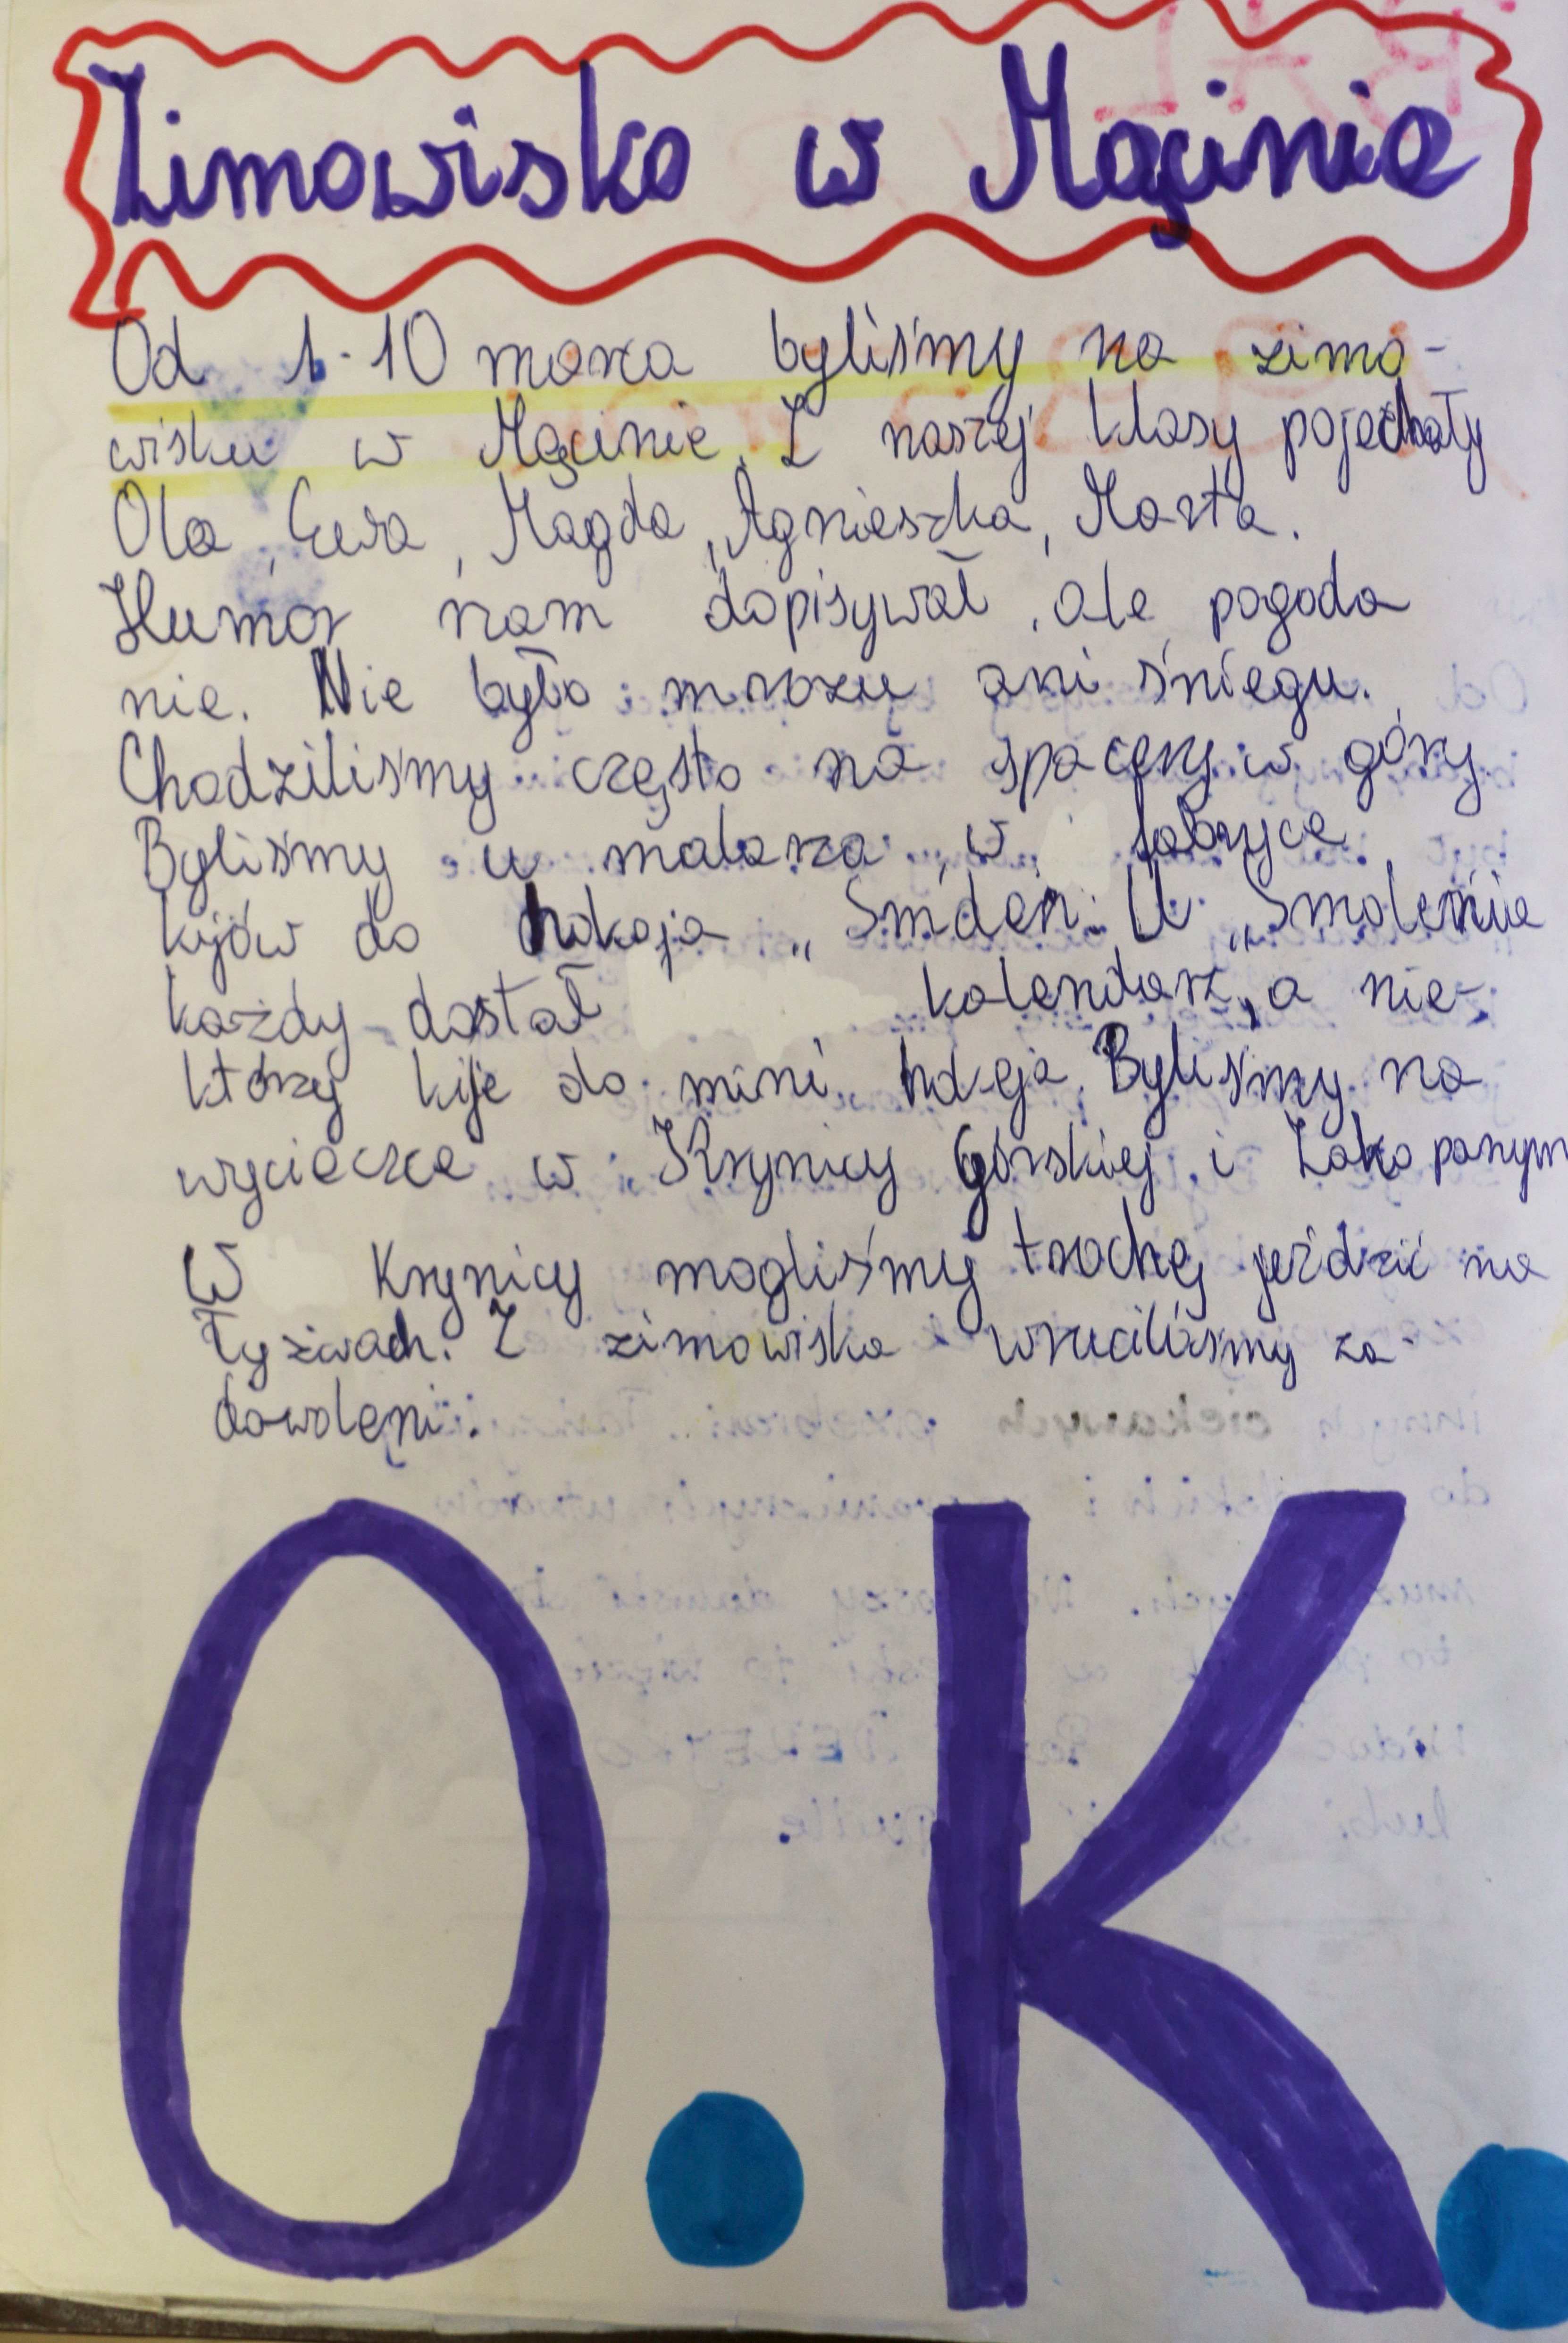 Zimowisko w Męcinie
Od 1-10 marca byliśmy na zimo-
wisku w Męcinie. Z naszej klasy pojechały
Ola, Ewa, Magda, Agnieszka, Marta.
Humor nam dopisywał, ale pogoda
nie. Nie było mrozu ani śniegu.
Chodziliśmy często na spacery w góry.
Byliśmy u malarza, w fabryce
kijów do hokeja „Smolen. U „Smolenia
każdy dostał kalendarz, a nie-
którzy kije do mini hokeja. Byliśmy na
wycieczce w Krynicy Górskiej i Zakopanym
W Krynicy mogliśmy trochę jeździć na
łyżwach. Z zimowiska wruciliśmy za-
dowoleni.
O.K.